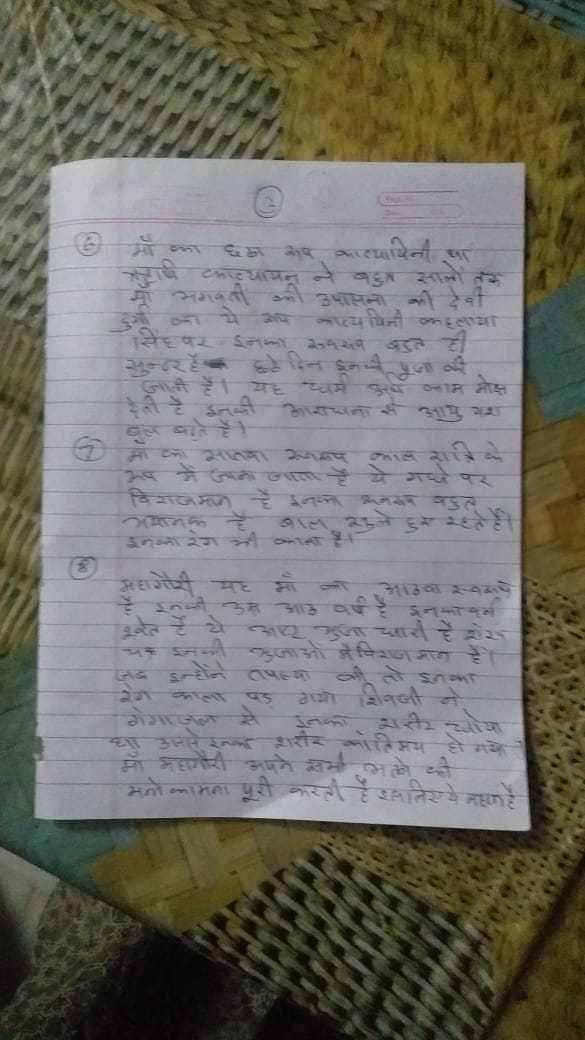 2
6 माँ का छठा रूप कात्यायिनी था
ऋषि कात्यायन ने बहुत सालों तक
माँ भगवती की उपासना की देवी
दुर्गा का ये रूप कात्यायिनी कहलाया
सिंह पर इनका स्वरूप बहुत ही
सुन्दर है छठे दिन इनकी पूजा की
जाती है। यह धर्म अर्थ काम मोक्ष
देती है इनकी आराधना से आयु यश
बल बढते है।
7 माँ का सातवा स्वरूप काल रात्रि के
रूप में जाना जाता है ये गधे पर
विराजमान है इनका स्वरूप बहुत
भयानक है बाल खुले हुए रहते हैं।
इनका रंग भी काला है।
8 महागौरी यह माँ का आठवा स्वरूप
है इनकी उम्र आठ वर्ष है इनका वर्ण
श्वेत है ये अष्ट भुजा धारी है शंख
चक्र इनकी भुजाओं में विराजमान है।
जब इन्होंने तपस्या की तो इनका
रंग काला पड़ गया शिवजी ने
गंगाजल से इनका शरीर धोया
था उससे इनका शरीर कांतिमय हो गया
माँ महागौरी अपने सभी भक्तो की
मनोकामना पूरी करती है इसलिए ये महान है